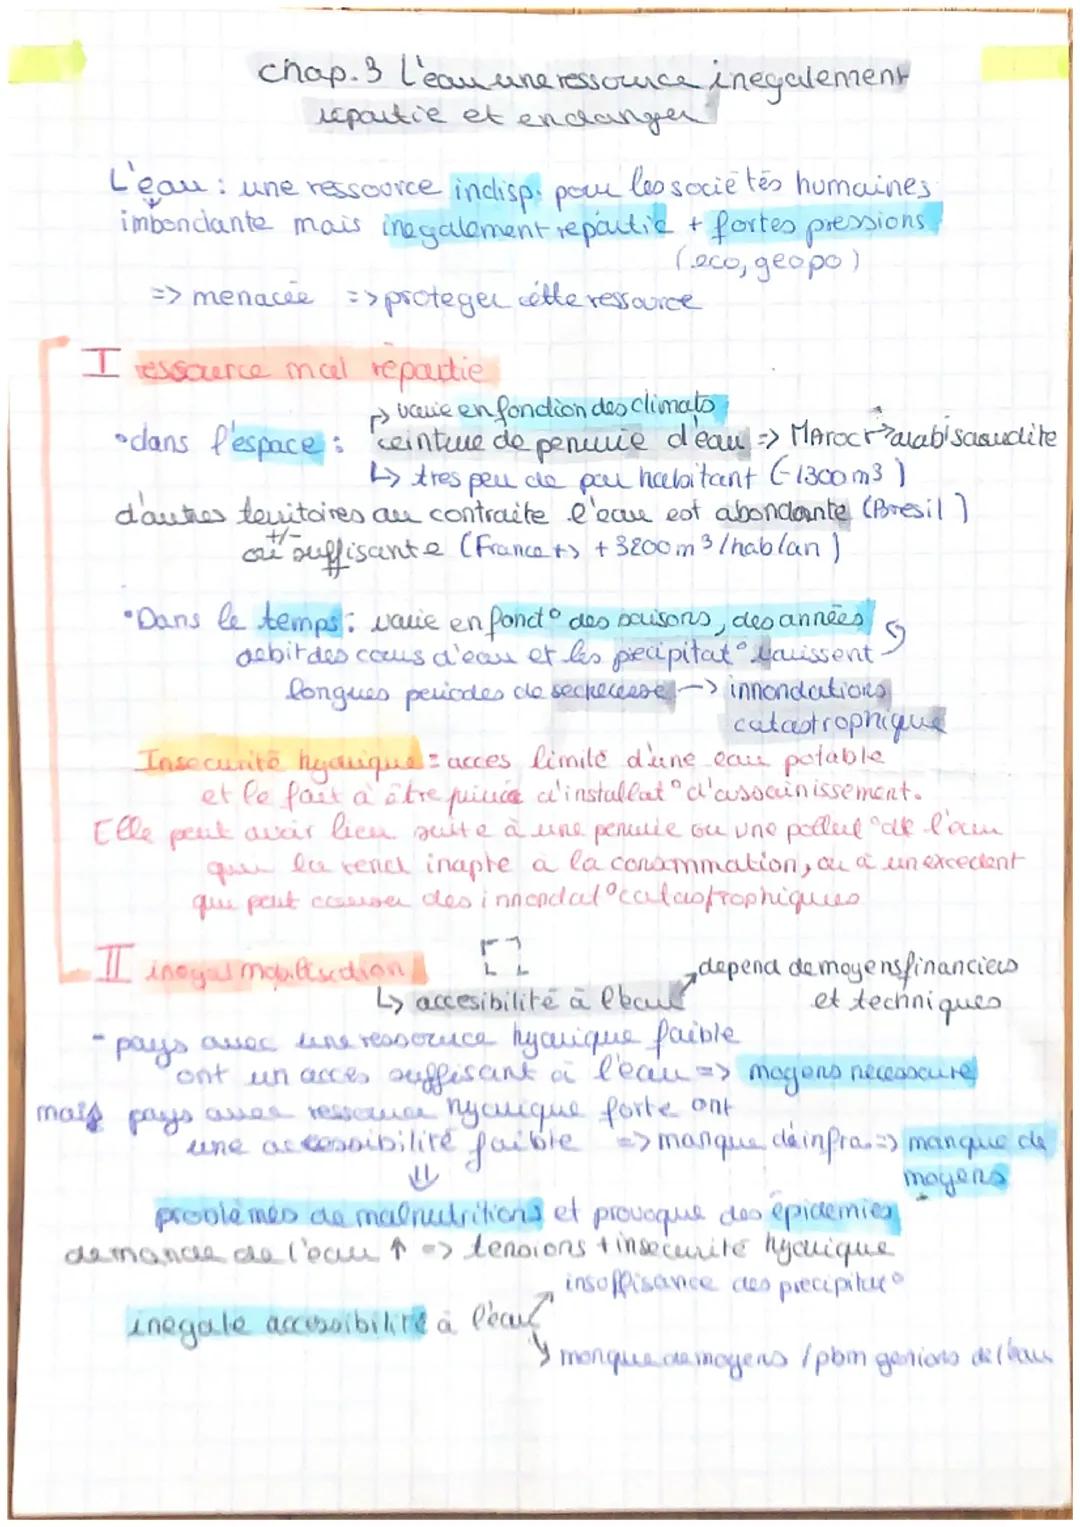 chap.3 L'eau une ressource inegalement
repartie et endanger
L'eau : une ressource indisp. pour les sociétés humaines
imbondante mais inegalement répartie + fortes pressions
(eco, geopo)
=> menacée => proteger cette ressource
I essource mal répartie
↱ varie en fonction des climats
•dans l'espace : ceinture de penurie d'eau => Maroc → arabi saoudite
↳ tres peu de par habitant (-1300m3)
d'autres territoires au contraire l'eau est abondante (Bresil)
+/-
ou suffisante (France → +3200m3/hab/an)
•Dans le temps : varie en fonct° des saisons, des années
debit des cours d'eau et les precipitat° varissent
longues periodes de secheresse → innondations
catastrophique
Insecurité hydrique = acces limité d'une eau potable
et le fait d'être privée d'installat° d'assainissement.
Elle peut avoir lieu suite à une penurie ou une pollut° de l'eau
qui la rend inapte à la consommation, ou à un excedent
qui peut causer des innondat° catastrophiques
II inegal mobilisation
↳ accesibilité à l'eau
depend de moyens financiers
et techniques
- pays avec une ressource hydrique faible
ont un acces suffisant à l'eau => moyens necessaire
mais pays avec ressource hydrique forte ont
une accessibilité faible => manque d'infra. => manque de
moyens
⇓
problèmes de malnutritions et provoque des épidemies
demande de l'eau ↑ => tensions + insecurité hydrique
insoffisance des precipitat°
inegale accessibilité à l'eau
manque de moyens / pbm gestions de l'eau